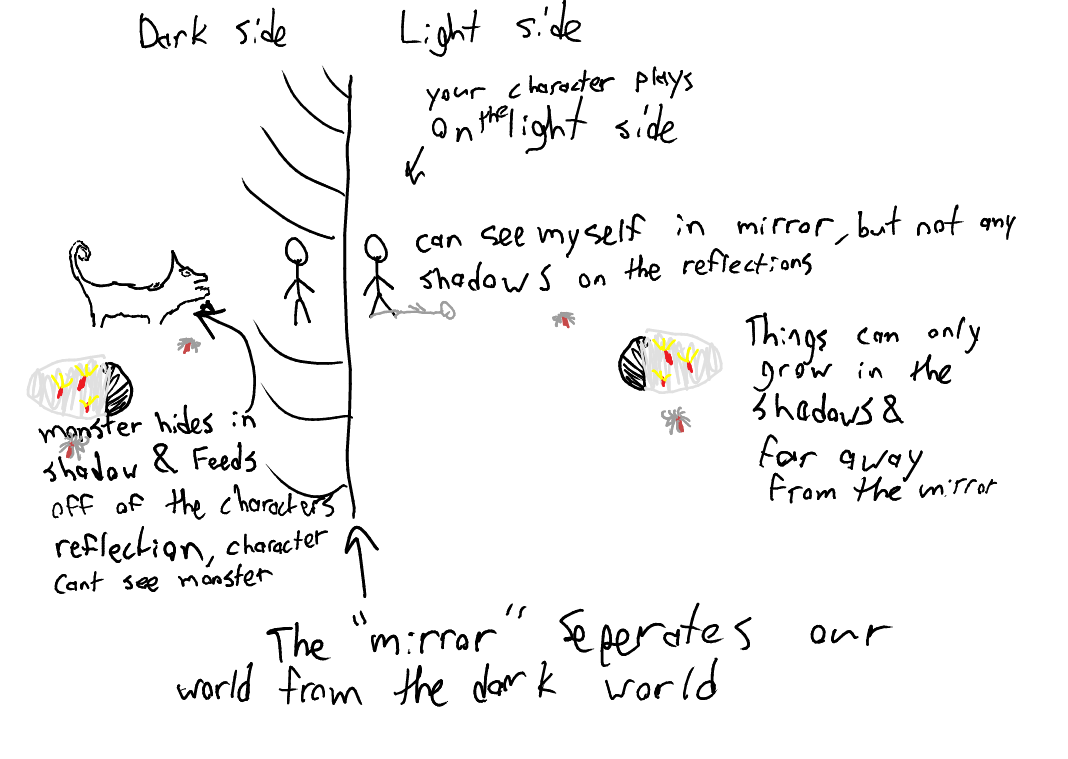 Dark side
Light side
your character plays
on the light side
can see myself in mirror, but not any
shadows on the reflections
Things can only
grow in the
shadows &
far away
from the mirror
monster hides in
shadow & Feeds
off of the characters
reflection, character
Cant see monster
The "mirror" Seperates our
world from the dark world